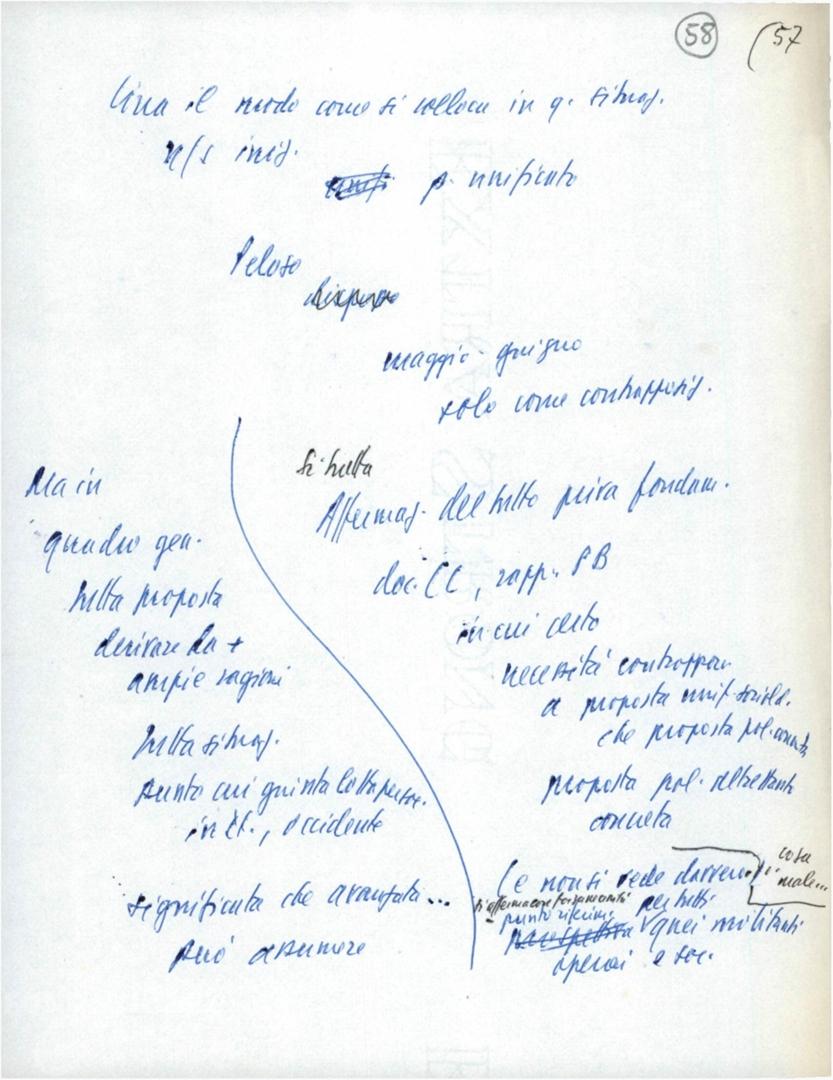 58 (57
Circa il modo come si colloca in q. situaz.
n/s iniz.
p. unificato
Peloso
maggio-giugno
solo come contrapposiz.
Si tratta
Affermaz. del tutto priva fondam.
doc. CC, rapp. PB
in cui certo
necessità contrappor
a proposta unif. sociald.
che proposta pol. concreta
proposta pol. altrettanto
concreta
cosa
male...
Ce non si vede davvero
per tutti
punto riferim.
quei militanti
operai e soc.
Ma in
quadro gen.
tutta proposta
derivare da +
ampie ragioni
Tutta situaz.
punto cui giunta lotta per soc.
in It., occidente
significato che avanzata...
può assumere